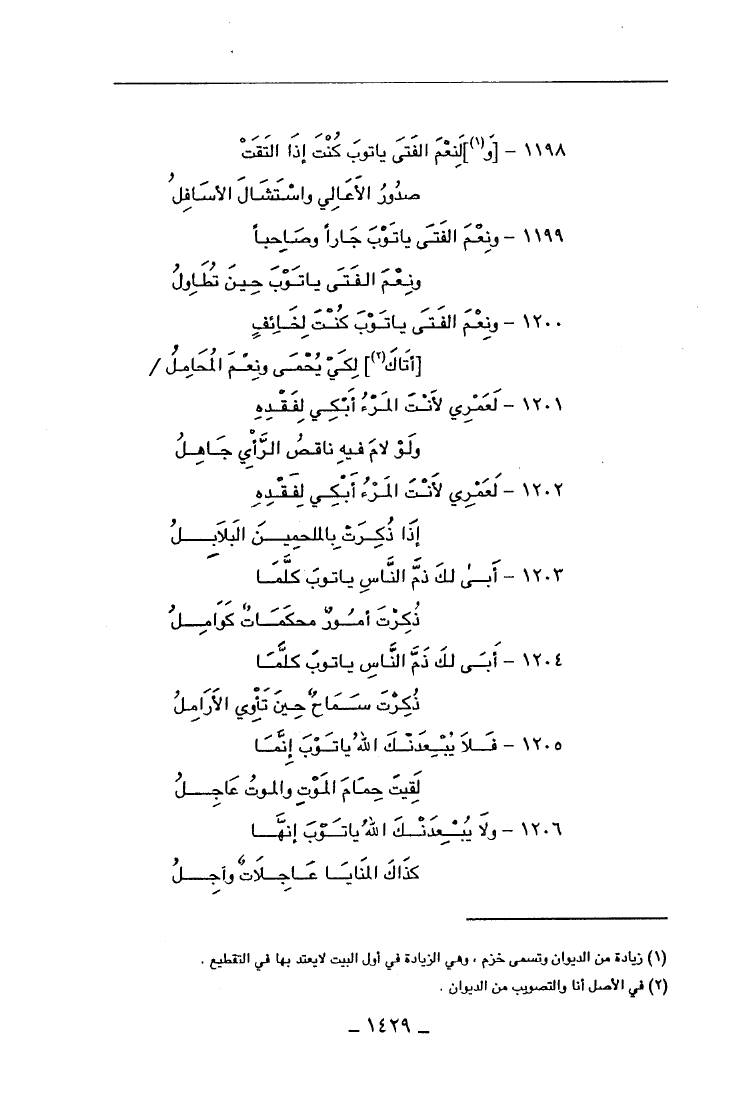 ١١٩٨ - [و(١)]لَنِعْمَ الفَتَى ياتوبَ كُنْتَ إذَا التَقَتْ
صدُورُ الأَعَالِي واسْتَشَالَ الأسَافِلُ
١١٩٩ - ونِعْمَ الفَتَى ياتَوْبَ جَاراً وصَاحِباً
ونِعْمَ الفَتَى ياتَوْبَ حِينَ تُطَاوِلُ
١٢٠٠ - ونِعْمَ الفَتَى ياتَوْبَ كُنْتَ لِخَائِفٍ
[أتَاكَ(٢)] لِكَيْ يُحْمَى ونِعْمَ المُحَامِلُ /
١٢٠١ - لَعَمْرِي لأَنْتَ المَرْءُ أَبْكِي لِفَقْدِهِ
ولَوْ لامَ فيهِ ناقصُ الرَّأْيِ جَاهِلُ
١٢٠٢ - لَعَمْرِي لأَنْتَ المَرْءُ أَبْكِي لِفَقْدِهِ
إذَا ذُكِرَتْ بِالملحمِينَ البَلَابِلُ
١٢٠٣ - أَبىٰ لكَ ذمَّ النَّاسِ ياتوبَ كلَّمَا
ذُكِرْتَ أمُورٌ محكمَاتٌ كَوَامِلُ
١٢٠٤ - أَبَى لكَ ذَمَّ النَّاسِ ياتوبَ كلَّمَا
ذُكِرْتَ سَمَاحٌ حِينَ تَأْوِي الأَرَامِلُ
١٢٠٥ - فَلاَ يُبْعِدَنْكَ اللهُ ياتَوْبَ إنَّمَا
لَقِيتَ حِمَامَ المَوْتِ والموتُ عَاجِلُ
١٢٠٦ - ولَا يُبْعِدَنْكَ اللهُ ياتَوْبَ إنهَّا
كذَاكَ المَنايَا عَاجِلَاتٌ وآجِلُ
(١) زيادة من الديوان وتسمى خزم ، وهي الزيادة في أول البيت لايعتد بها في التقطيع .
(٢) في الأصل أنا والتصويب من الديوان .
ـ ١٤٢٩ ـ